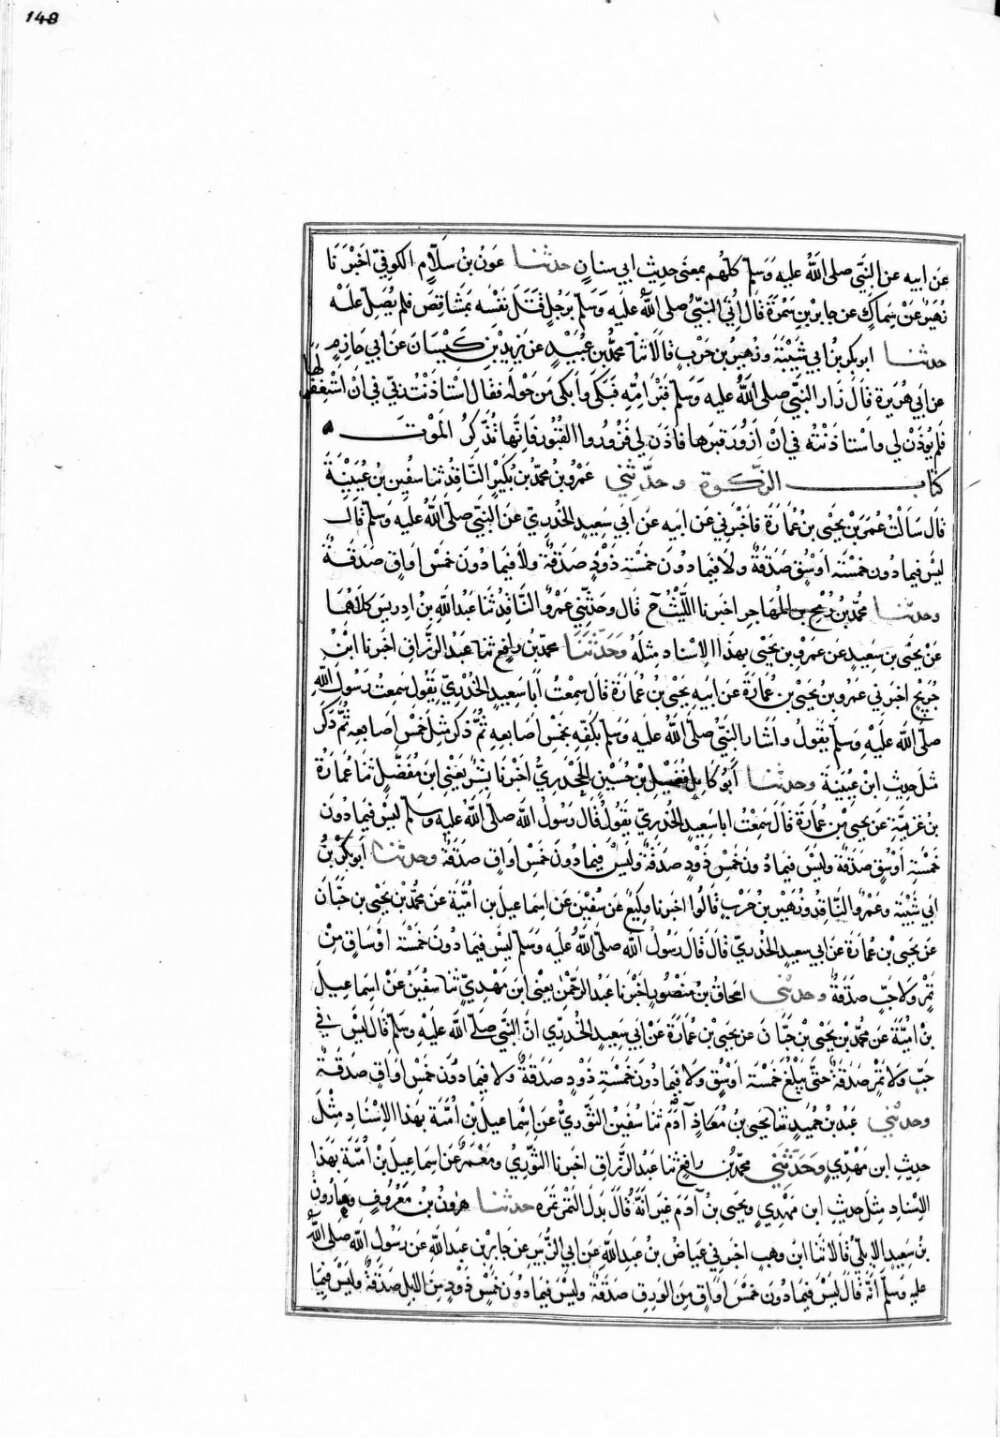 148
عن ابيه عن النبي صلى الله عليه وسلم كلهم بمعنى حديث ابي سنان حدثنا عون بن سلام الكوفي اخبرنا
زهير عن سماك عن جابر بن سمرة قال اتي النبي صلى الله عليه وسلم برجل قتل نفسه بمشاقص فلم يصل عليه
حدثنا ابو بكر بن ابي شيبة وزهير بن حرب قالا ثنا محمد بن عبيد عن يزيد بن كيسان عن ابي حازم
عن ابي هريرة قال زار النبي صلى الله عليه وسلم قبر امه فبكى وابكى من حوله فقال استاذنت ربي في ان استغفر لها
فلم يؤذن لي واستاذنته في ان ازور قبرها فاذن لي فزوروا القبور فانها تذكر الموت
كتاب الزكوة وحدثني عمرو بن محمد بن بكير الناقد ثنا سفين بن عيينة
قال سالت عمرو بن يحيى بن عمارة فاخبرني عن ابيه عن ابي سعيد الخدري عن النبي صلى الله عليه وسلم قال
ليس فيما دون خمسة اوسق صدقة ولا فيما دون خمسة ذود صدقة ولا فيما دون خمس اواق صدقة
وحدثنا محمد بن رمح بن المهاجر اخبرنا الليث ح قال وحدثني عمرو الناقد ثنا عبد الله بن ادريس كلاهما
عن يحيى بن سعيد عن عمرو بن يحيى بهذا الاسناد مثله وحدثنا محمد بن رافع ثنا عبد الرزاق اخبرنا ابن
جريج اخبرني عمرو بن يحيى بن عمارة عن ابيه يحيى بن عمارة قال سمعت ابا سعيد الخدري يقول سمعت رسول الله
صلى الله عليه وسلم يقول واشار النبي صلى الله عليه وسلم بكفه بخمس اصابعه ثم ذكر مثل خمس اصابعه ثم ذكر
مثل حديث ابن عيينة وحدثنا ابو كامل فضيل بن حسين الجحدري اخبرنا بشر يعني ابن مفضل ثنا عمارة
بن غزية عن يحيى بن عمارة قال سمعت ابا سعيد الخدري يقول قال رسول الله صلى الله عليه وسلم ليس فيما دون
خمسة اوسق صدقة وليس فيما دون خمس ذود صدقة وليس فيما دون خمس اواق صدقة وحدثنا ابو بكر بن
ابي شيبة وعمرو الناقد وزهير بن حرب قالوا اخبرنا وكيع عن سفين عن اسماعيل بن امية عن محمد بن يحيى بن حبان
عن يحيى بن عمارة عن ابي سعيد الخدري قال قال رسول الله صلى الله عليه وسلم ليس فيما دون خمسة اوساق من
تمر ولا حب صدقة وحدثني اسحاق بن منصور اخبرنا عبد الرحمن يعني ابن مهدي ثنا سفين عن اسماعيل
بن امية عن محمد بن يحيى بن حبان عن يحيى بن عمارة عن ابي سعيد الخدري ان النبي صلى الله عليه وسلم قال ليس في
حب ولا تمر صدقة حتى يبلغ خمسة اوسق ولا فيما دون خمسة ذود صدقة ولا فيما دون خمس اواق صدقة
وحدثني عبد بن حميد ثنا يحيى بن معاذ آدم ثنا سفين الثوري عن اسماعيل بن امية بهذا الاسناد مثل
حديث ابن مهدي وحدثني محمد بن رافع ثنا عبد الرزاق اخبرنا الثوري ومعمر عن اسماعيل بن امية بهذا
الاسناد مثل حديث ابن مهدي ويحيى بن آدم غير انه قال بدل التمر ثمر حدثنا هرون بن معروف وهارون
بن سعيد الايلي قالا ثنا ابن وهب اخبرني عياض بن عبد الله عن ابي الزبير عن جابر بن عبد الله عن رسول الله صلى الله
عليه وسلم انه قال ليس فيما دون خمس اواق من الورق صدقة وليس فيما دون خمس ذود من الابل صدقة وليس فيما